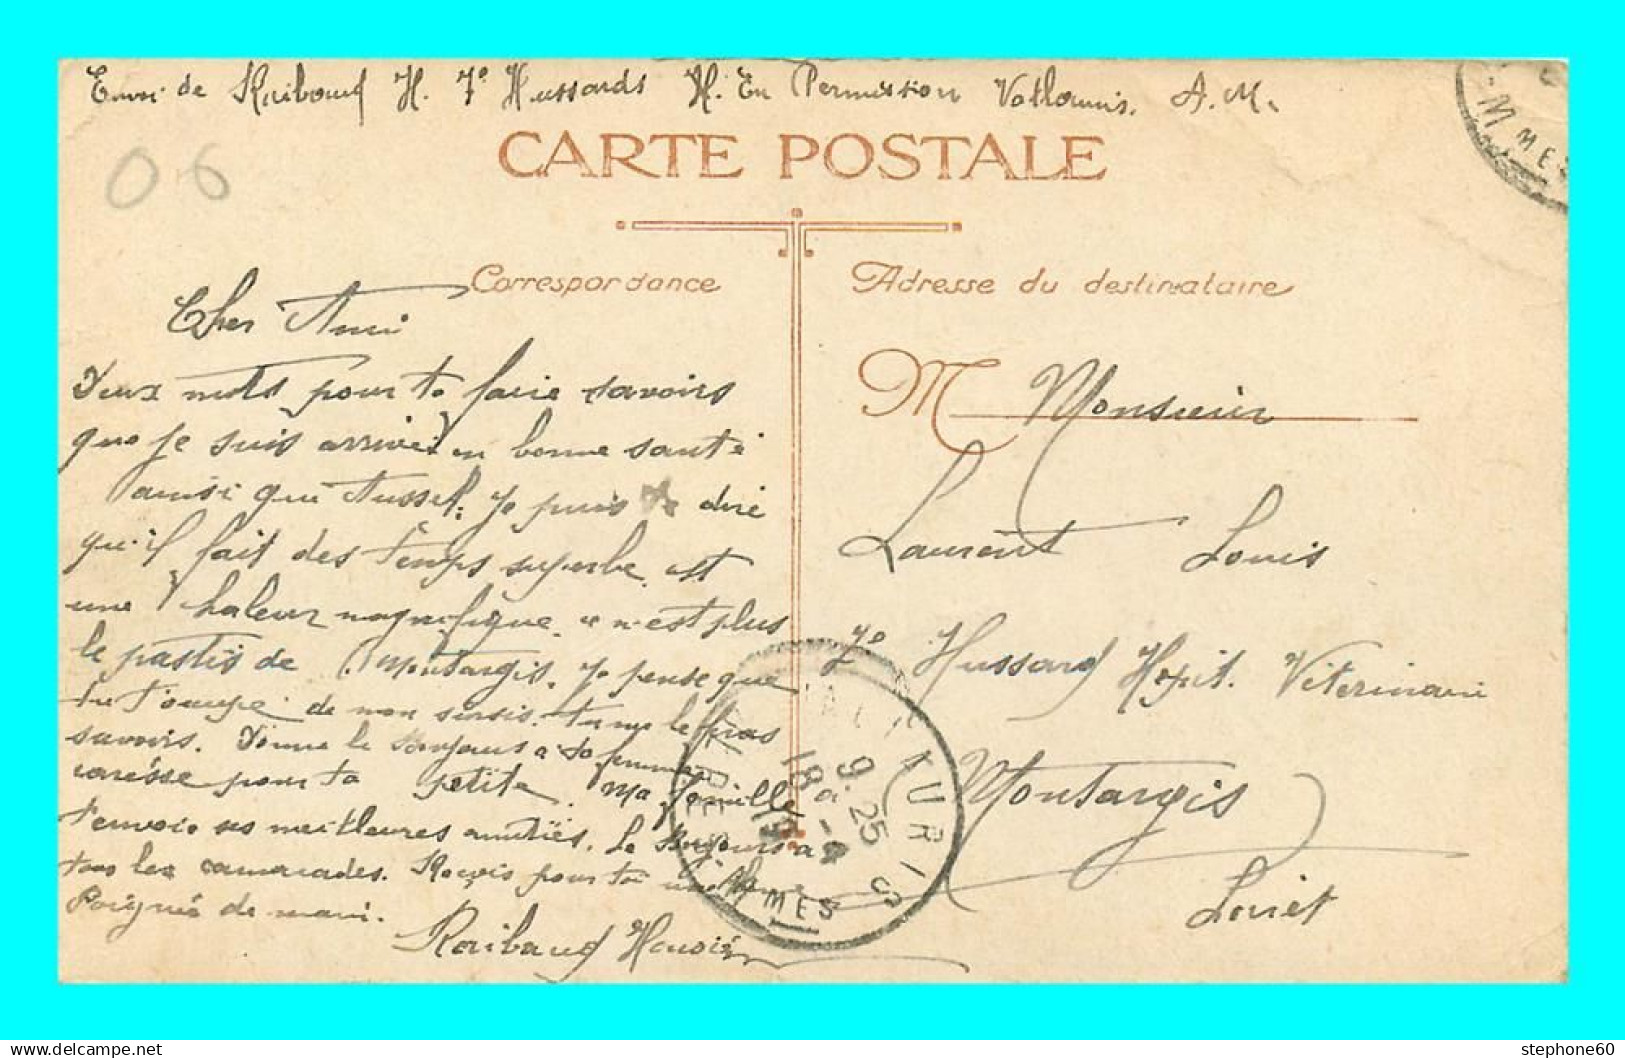 Envoi de Raibaud H. 7e Hussards H. En Permission Vallauris. A.M.
CARTE POSTALE
06
Correspondance
Adresse du destinataire
Cher Ami
Deux mots pour te faire savoirs
que je suis arrivé en bonne santé
ainsi que Aussel. je puis te dire
qu'il fait des temps superbe et
une chaleur magnifique. ce n'est plus
le pastis de Montargis. Je pense que
tu t'occupe de mon sursis. tu me le feras
savoirs. Donne le bonjours a ta femme
caresse pour ta petite. Ma famille
t'envoie ses meilleures amitiés. Le Bonjours a
tous les camarades. Reçois pour toi une
Poignée de main.
Raibaud Honoré
M Monsieur
Laurent Louis
7e Hussard Hopit. Véterinaire
Montargis
Loiret
VALLAURIS
9-25
18
MMES
-MMES
delcampe.net
stephone60